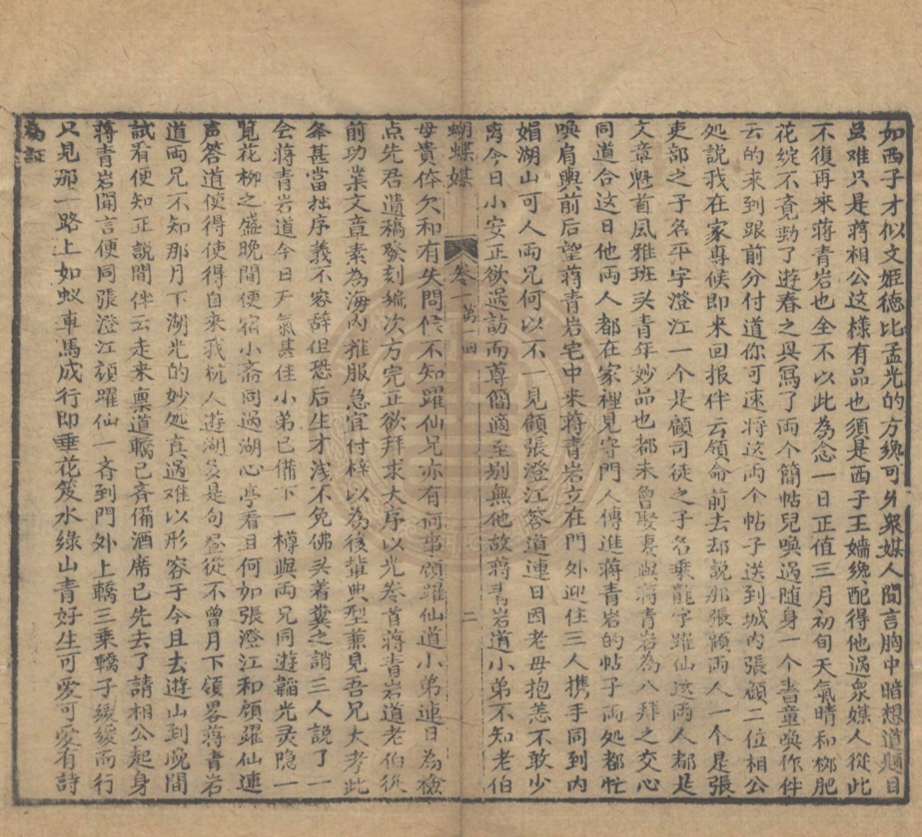 如西子才似文姬德比孟光的方纔可外衆媒人聞言胸中暗想道題目
虽难只是蒋相公这様有品也須是西子王嬙纔配得他過衆媒人從此
不復再来蒋青岩也全不以此為念一日正值三月初旬天氣晴和柳肥
花綻不竟動了遊春之具冩了両个簡帖兒喚過随身一个書童喚作伴
云的来到跟前分付道你可速将这両个帖子送到城内張顧二位相公
処説我在家專候即来回报伴云領命前去却説那張顧両人一个是張
吏部之子名平字澄江一个是顧司徒之子名乗龍字躍仙这両人都是
文章魁首風雅班头青年妙品也都未曾娶妻與蒋青岩為八拜之交心
同道合这日他両人都在家裡見守門人傳進蒋青岩的帖子両処都忙
喚肩輿前后望蒋青岩宅中来蒋青岩立在門外迎住三人携手同到内
媚湖山可人両兄何以不一見顧張澄江答道連日因老母抱恙不敢少
离今日小安正欲趋訪而尊簡適至别無他故蒋青岩道小弟不知老伯
蝴蝶媒 卷一 第一回 二
母貴体欠和有失問候不知躍仙兄亦有何事顧躍仙道小弟連日為檢
点先君遺稿發刻編次方完正欲拜求大序以光卷首蒋青岩道老伯從
前功業文章素為海内推服急宜付梓以為後輩典型兼見吾兄大孝此
条甚當拙序義不容辞但恐后生才浅不免佛头着糞之誚三人説了一
会蒋青岩道今日天氣甚佳小弟已備下一樽與両兄同遊韜光灵隐一
覧花柳之盛晚間便宿小斋同過湖心亭看月何如張澄江和顧躍仙連
声答道使得使得自来我杭人遊湖多是句昼從不曾月下領畧蒋青岩
道両兄不知那月下湖光的妙処真過难以形容于今且去遊山到晚間
試看便知正説間伴云走来禀道轎已斉備酒席已先去了請相公起身
蒋青岩聞言便同張澄江顧躍仙一斉到門外上轎三乗轎子緩緩而行
只見那一路上如蚁車馬成行即垂花笈水綠山青好生可愛可愛有詩
為証